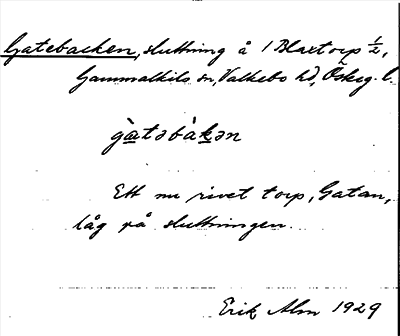 Gatebacken, sluttning å 1 Blaxtorp ½,
Gammalkils sn, Valkebo hd, Österg. l.
gàtəbàkən
Ett nu rivet torp, Gatan,
låg på sluttningen.
Erik Alm 1929